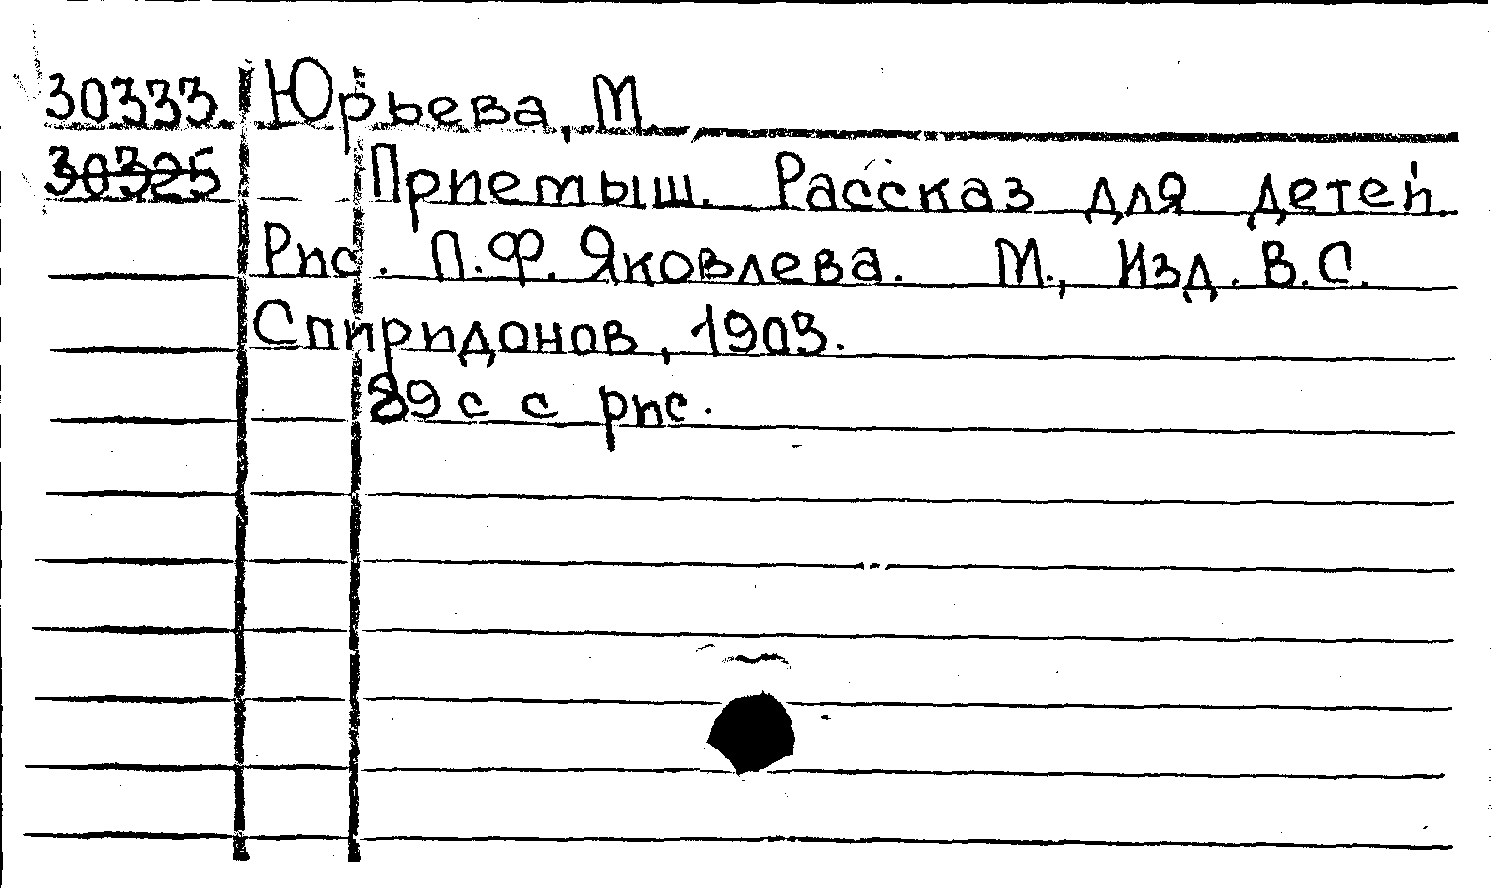 30333. Юрьева, М.
30325 Приемыш. Рассказ для детей.
Рис. П.Ф. Яковлева. М., Изд. В.С.
Спиридонов, 1903.
89 с с рис.